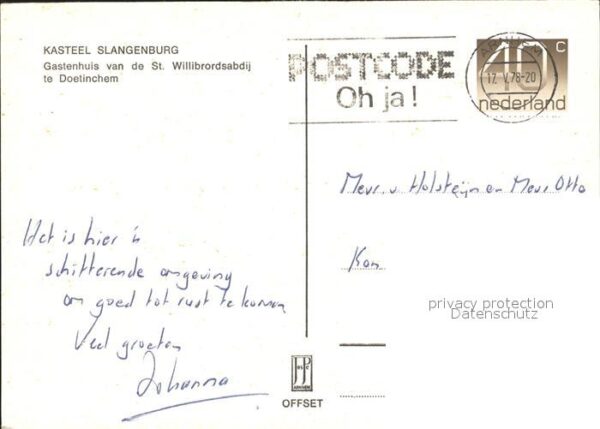 KASTEEL SLANGENBURG
Gastenhuis van de St. Willibrordsabdij
te Doetinchem
POSTCODE
Oh ja!
17. V. 78-20
40 c
nederland
Mevr. v Holsteijn en Mevr Otto
Kon
Het is hier 'n
schitterende omgeving
om goed tot rust te komen
Veel groeten
Johanna
privacy protection
Datenschutz
OFFSET